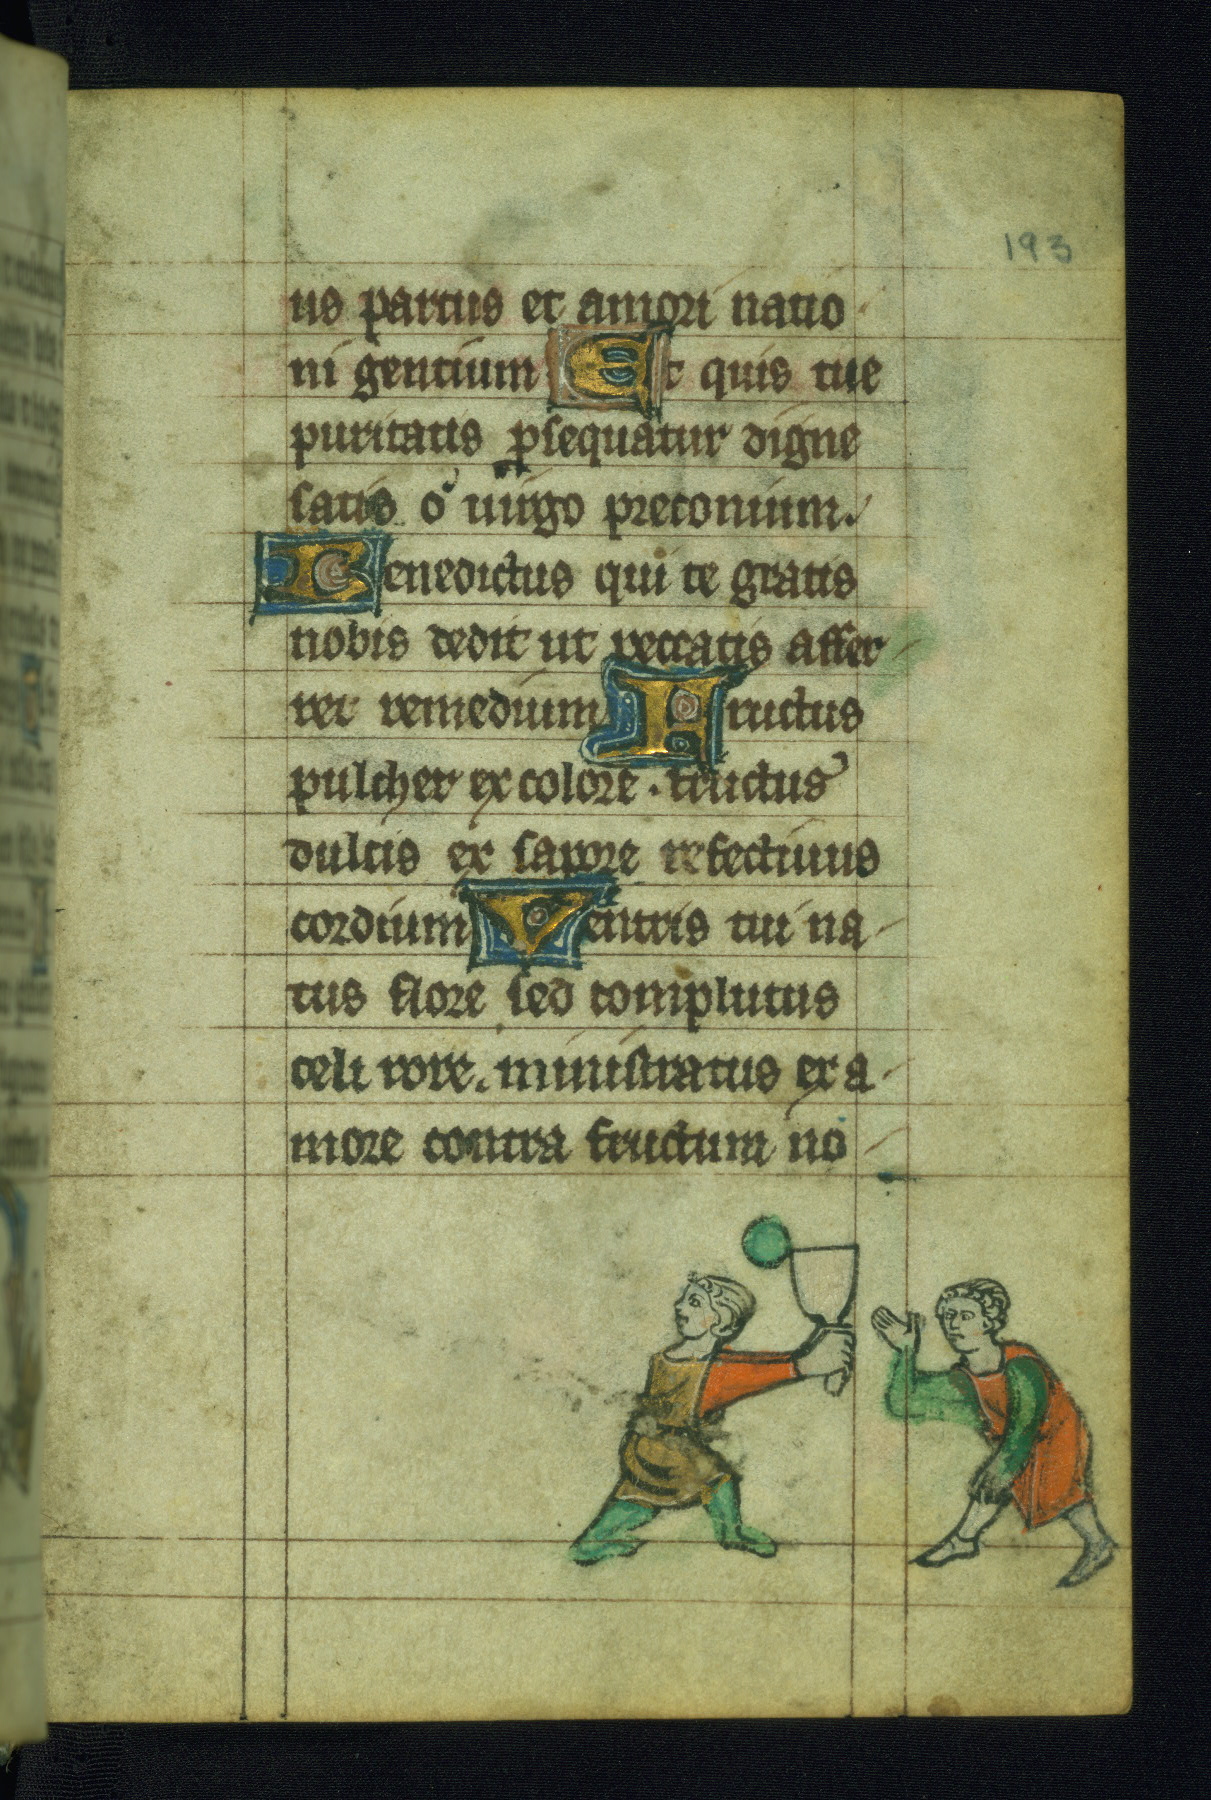 193
us partus et amori natio
ni gentium Et quis tue
puritatis psequatur digne
satis o uirgo preconium.
Benedictus qui te gratis
nobis dedit ut peccatis affer
ret remedium Fructus
pulcher ex colore . fructus
dulcis ex sapore refectiuus
cordium Ventris tui na
tus flore sed complutus
celi rore. ministratus ex a
more contra fructum no